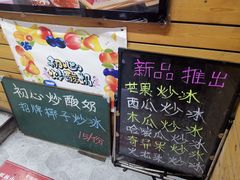 初心
炒酸奶
初心炒酸奶
招牌椰子炒冰
15/份
新品推出
芒果炒冰
西瓜炒冰
木瓜炒冰
哈密瓜炒冰
奇异果炒冰
火龙果炒冰